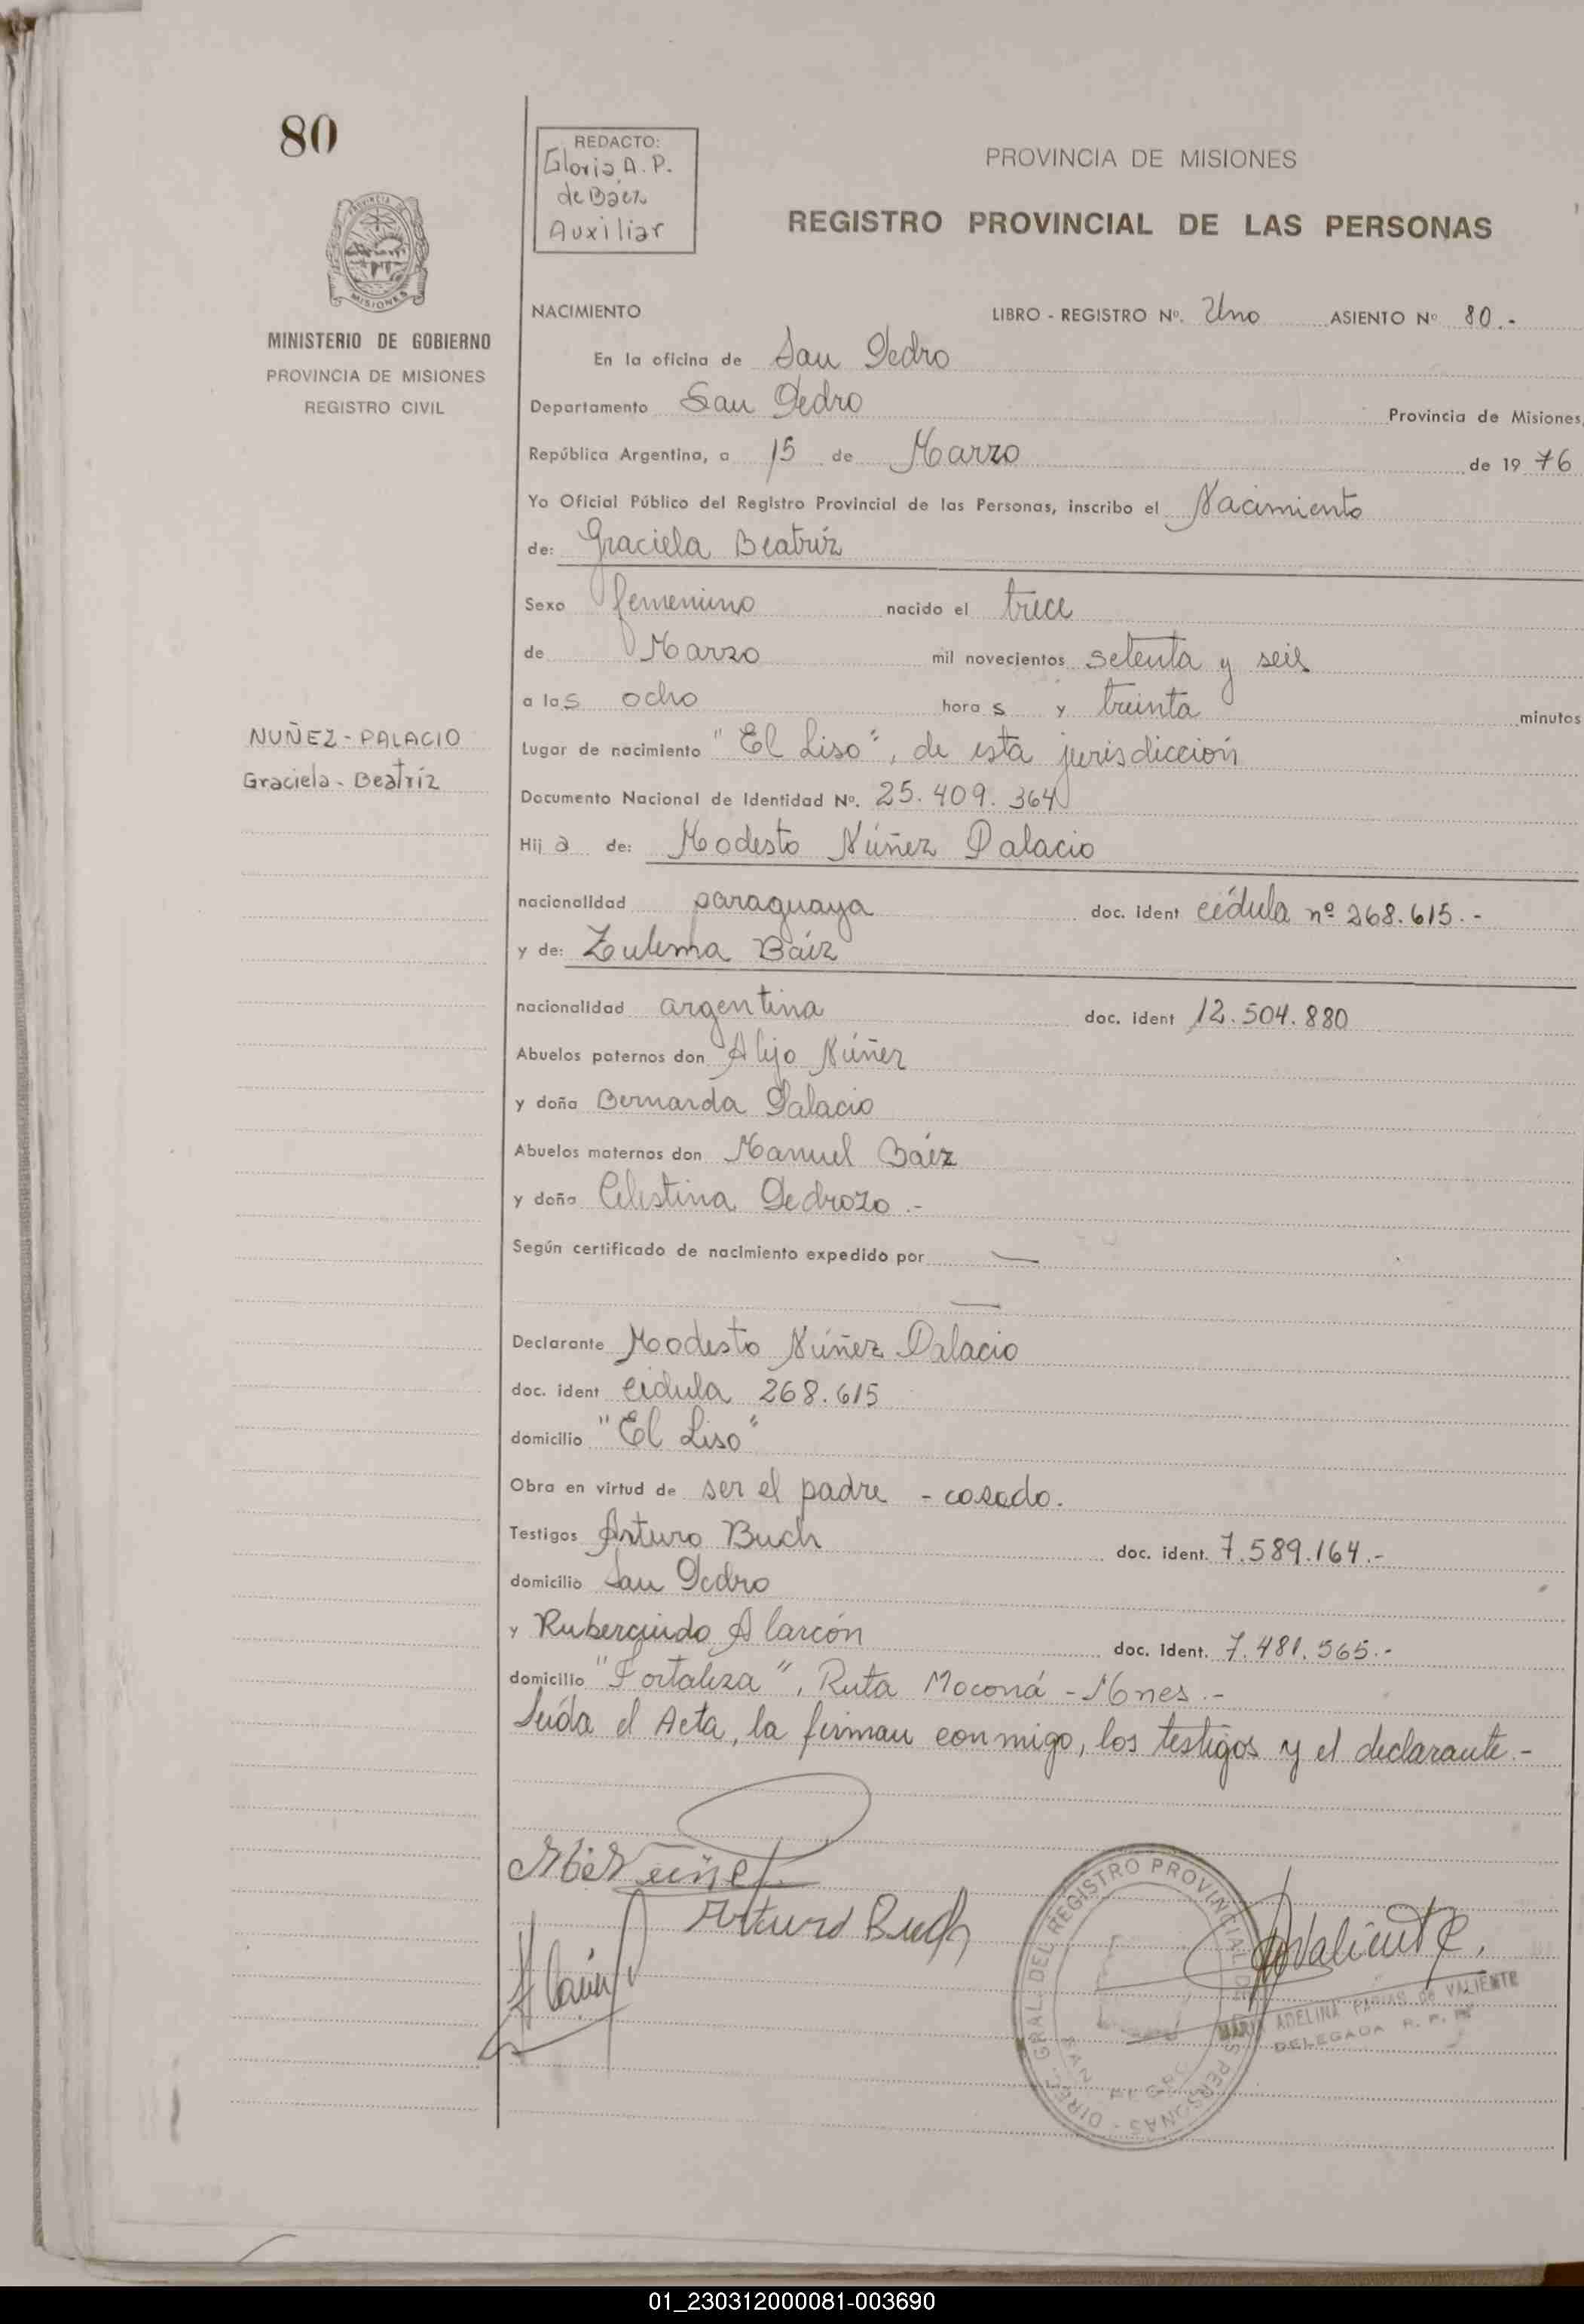 80
REDACTO:
Gloria A. P.
de Báez
Auxiliar
PROVINCIA DE MISIONES
REGISTRO PROVINCIAL DE LAS PERSONAS
PROVINCIA DE
MISIONES
MINISTERIO DE GOBIERNO
PROVINCIA DE MISIONES
REGISTRO CIVIL
NACIMIENTO LIBRO - REGISTRO Nº. Uno ASIENTO Nº 80.-
En la oficina de San Pedro
Departamento San Pedro Provincia de Misiones,
República Argentina, a 15 de Marzo de 19 76
Yo Oficial Público del Registro Provincial de las Personas, inscribo el Nacimiento
de: Graciela Beatríz
Sexo femenino nacido el trece
de Marzo mil novecientos setenta y seis
a las ocho horas y treinta minutos
NUÑEZ - PALACIO
Graciela - Beatríz
Lugar de nacimiento "El Liso", de esta jurisdicción
Documento Nacional de Identidad Nº. 25.409.364
Hija de: Modesto Núñez Palacio
nacionalidad paraguaya doc. ident cédula nº 268.615.-
y de: Zulema Báez
nacionalidad argentina doc. ident 12.504.880
Abuelos paternos don Alejo Núñez
y doña Bernarda Palacio
Abuelos maternos don Manuel Báez
y doña Celestina Pedrozo.-
Según certificado de nacimiento expedido por —
—
Declarante Modesto Núñez Palacio
doc. ident cédula 268.615
domicilio "El Liso"
Obra en virtud de ser el padre - casado.
Testigos Arturo Buch doc. ident. 7.589.164.-
domicilio San Pedro
y Ruberquido Alarcón doc. ident. 7.481.565.-
domicilio "Fortaleza", Ruta Moconá - Mnes.-
Leída el Acta, la firman conmigo, los testigos y el declarante.-
Núñez
Arturo Buch
Valiente
DIREC. GRAL. DEL REGISTRO PROVINCIAL DE LAS PERSONAS
SAN PEDRO
MARIA ADELINA FARIAS de VALIENTE
DELEGADA R. P. P.
01_230312000081-003690